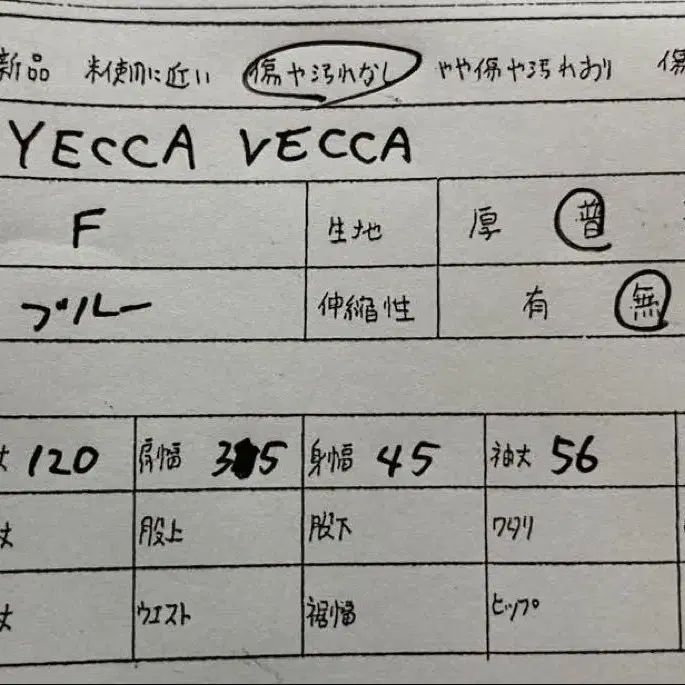 新品 未使用に近い 傷や汚れなし やや傷や汚れあり 傷
YECCA VECCA
F 生地 厚 普
ブルー 伸縮性 有 無
丈 120 肩幅 35 身幅 45 袖丈 56
丈 股上 股下 ワタリ
丈 ウエスト 裾幅 ヒップ